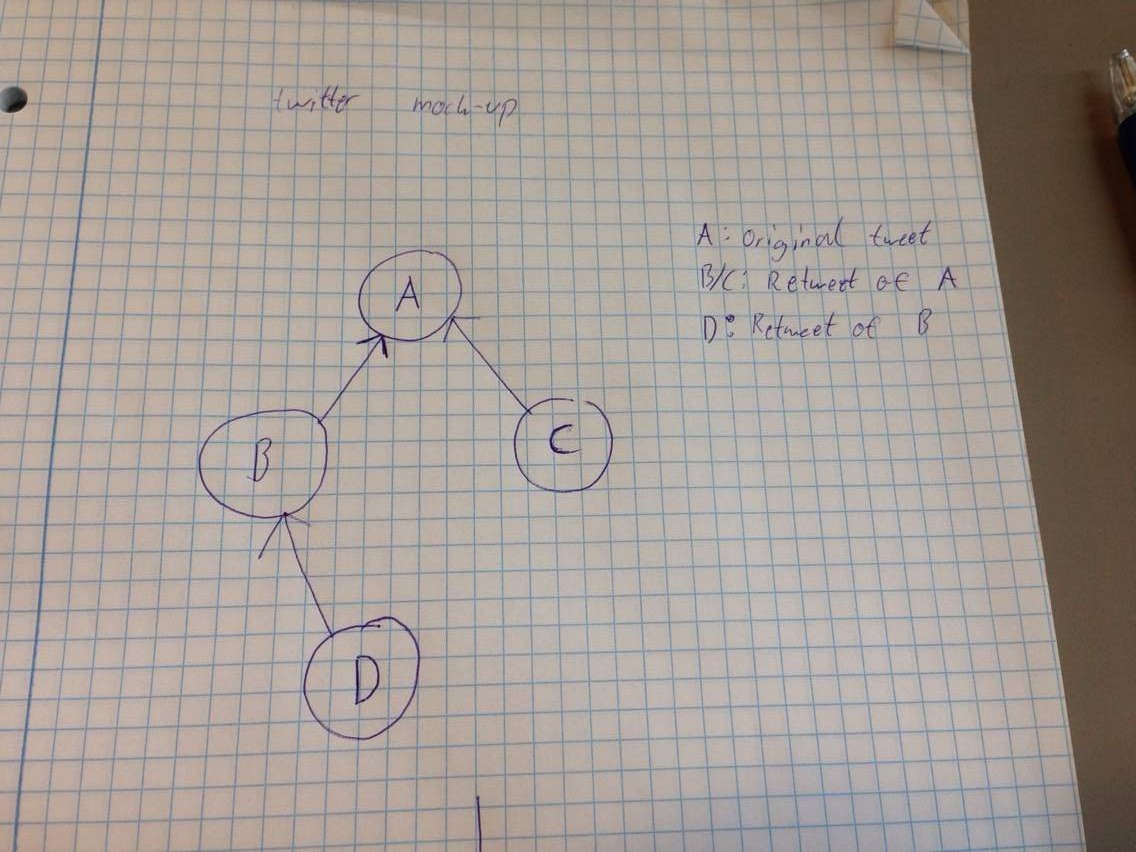 twitter mock-up
A: Original tweet
B/C: Retweet of A
D: Retweet of B
A
B
C
D